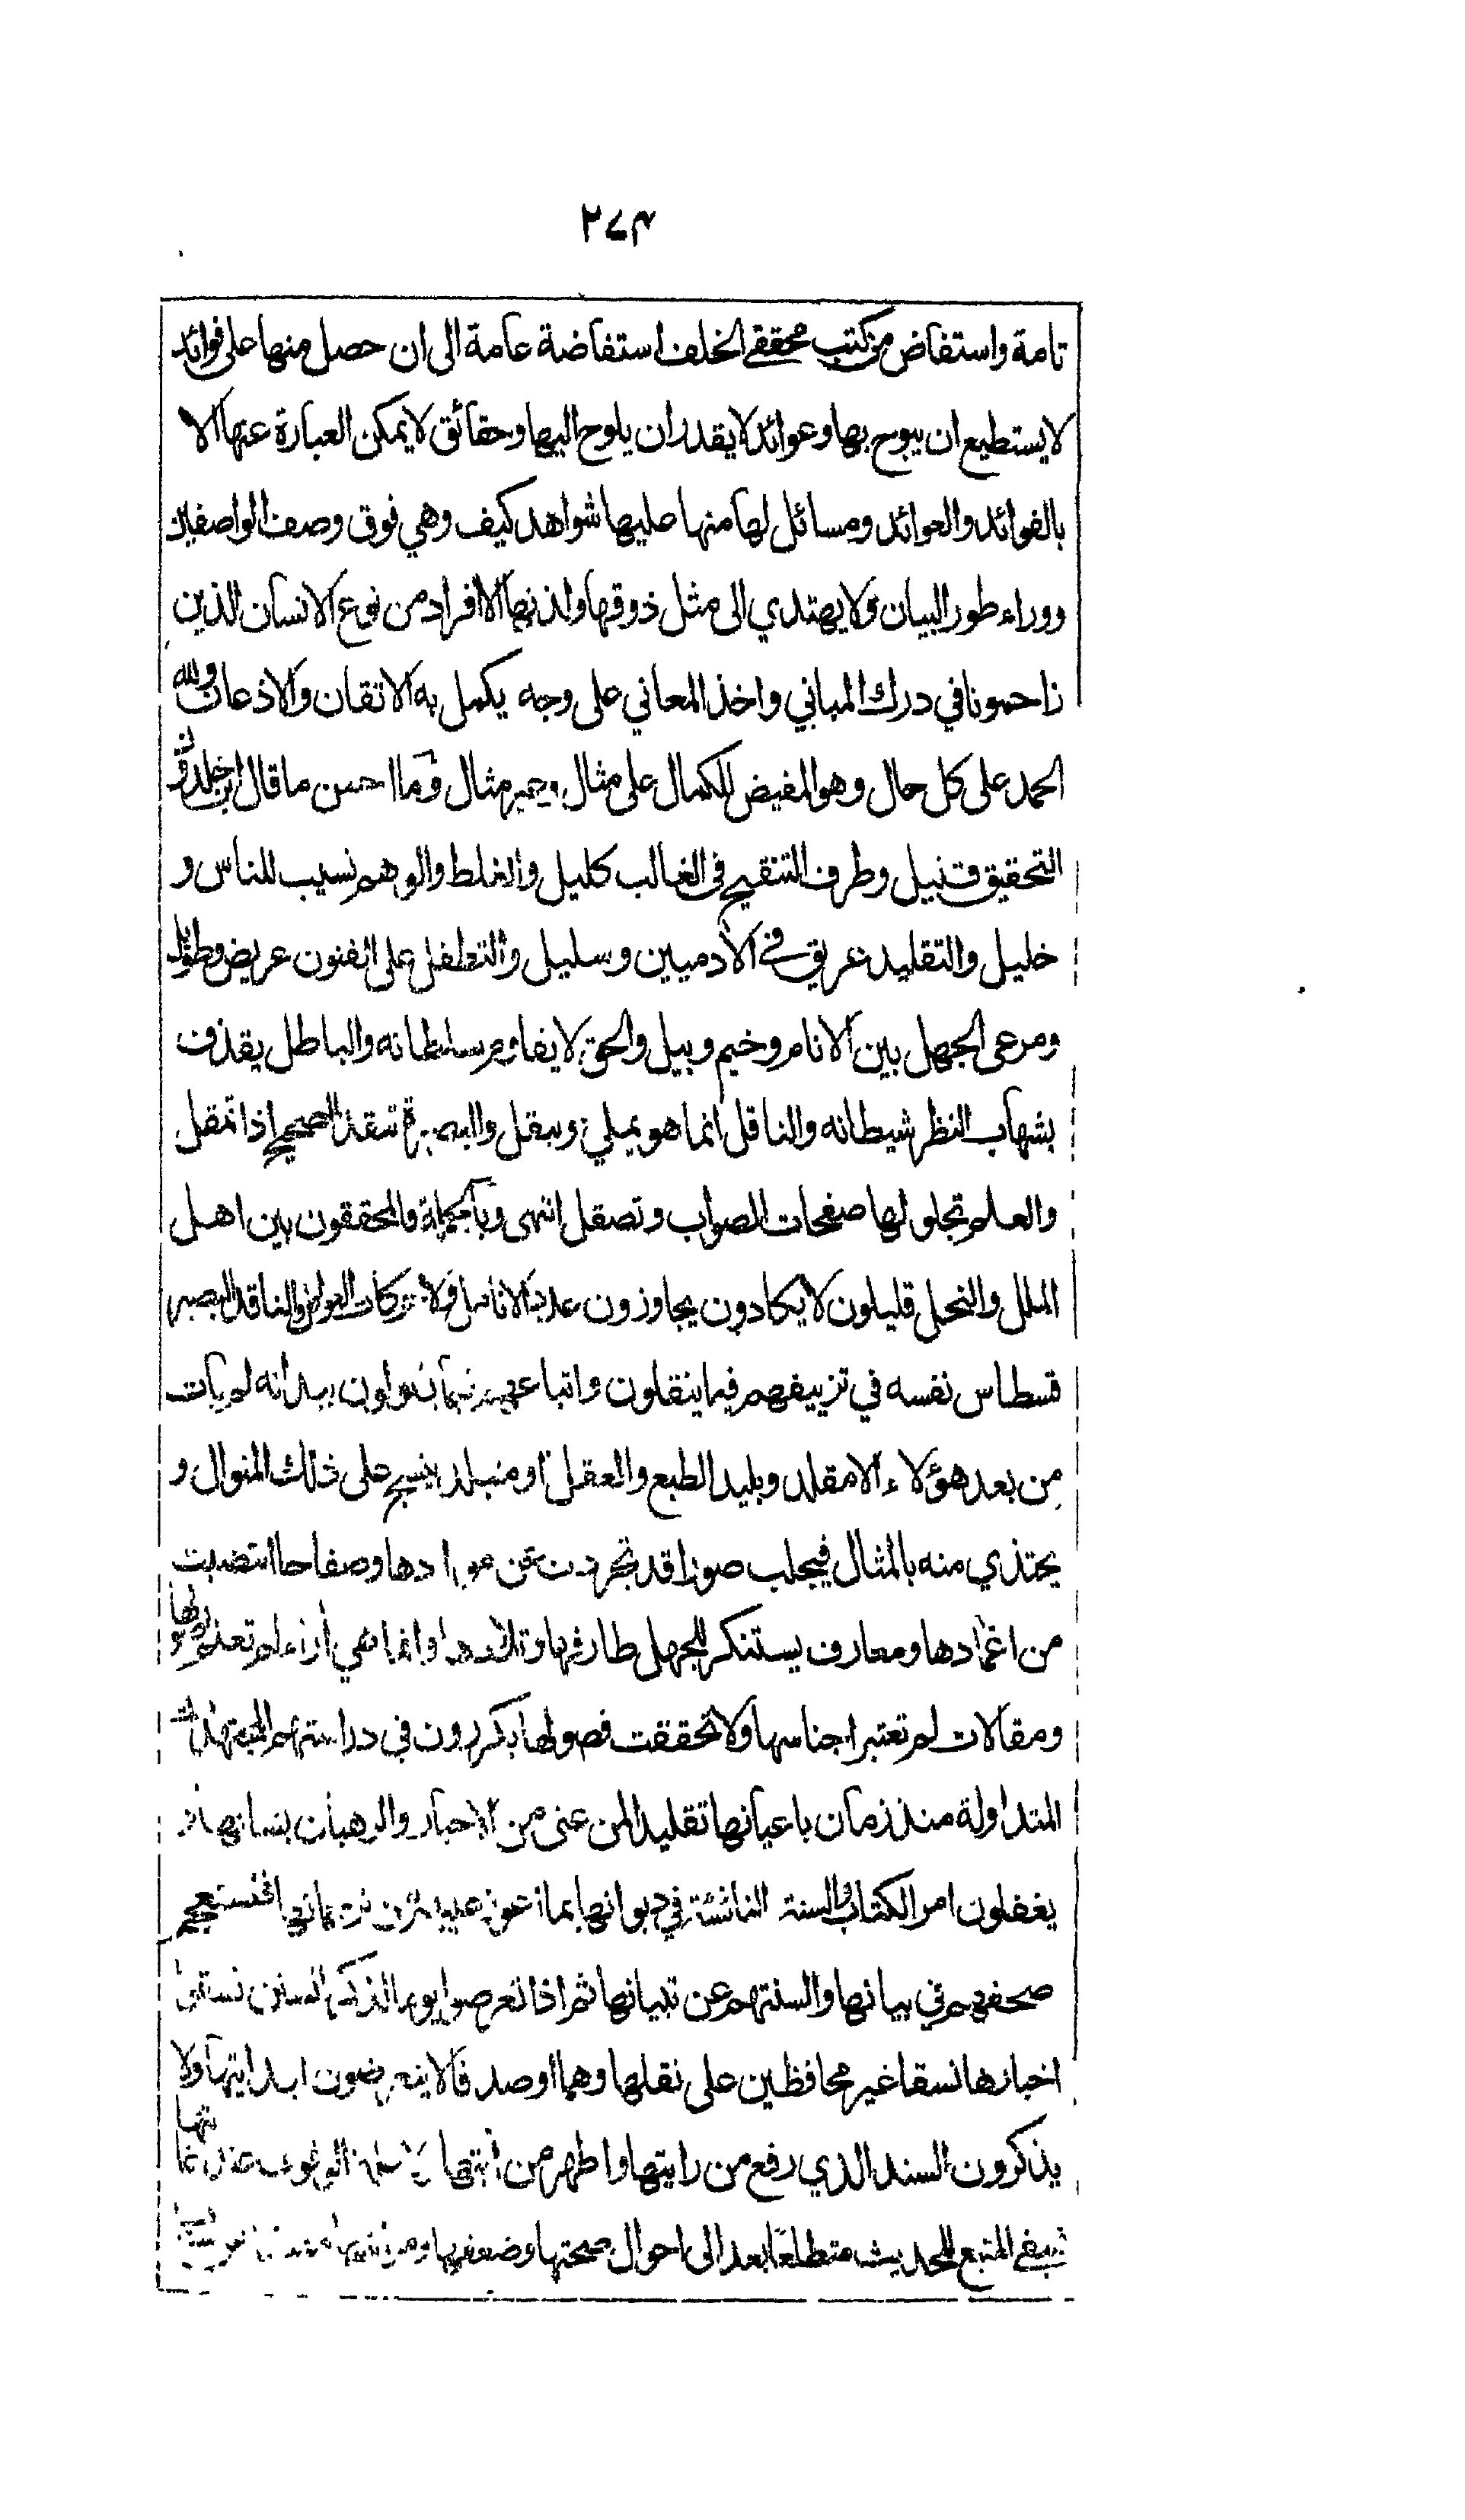 ٢٧٤
تامة واستفاض من كتب محققي الخلف استفاضة عامة الى ان حصل منها على فوائد
لا يستطيع ان يبوح بها وعوائد لا يقدر ان يلوح اليها وحقائق لا يمكن العبارة عنها الا
بالفوائد والعوائد ومسائل لها منها عليها شواهد كيف وهي فوق وصف الواصفين
ووراء طور البيان ولا يهتدي الى مثل ذوقها ولذتها الا افراد من نوع الانسان الذين
زاحمونا في درك المباني واخذ المعاني على وجه يكمل به الاتقان والاذعان ولله
الحمد على كل حال وهو المفيض للكمال على مثال وغير مثال وما احسن ما قال ابن خلدون
التحقيق قليل وطرف التنقيح في الغالب كليل والغلط والوهم نسيب للناس و
خليل والتقليد عريق في الآدميين وسليل والتطفل على الفنون عريض وطويل
ومرعى الجهل بين الانام وخيم وبيل والحق لا يقاوم سلطانه والباطل يقذف
بشهاب النظر شيطانه والناقل انما هو يملي وينقل والبصيرة تنقد الصحيح اذا تمقل
والعلم تجلو لها صفحات الصواب وتصقل انتهى وبالجملة فالمحققون بين اهل
الملل والنحل قليلون لا يكادون يجاوزون عدد الانامل ولا حركات العوامل والناقد البصير
قسطاس نفسه في تزييفهم فيما ينقلون واتباعهم فيما يقولون بيد انه لم يأت
من بعد هؤلاء الا مقلد وبليد الطبع والعقل او متبلد ينسج على ذلك المنوال و
يحتذي منه بالمثال فيجلب صورا قد تجردت عن موادها وصفاحا انتضيت
من اغمادها ومعارف يستنكر للجهل طارفها وتلادها وانما هي آراء لم تعلم اصولها
ومقالات لم تعتبر اجناسها ولا تحققت فصولها يكررون في دراستهم المجتهدات
المتداولة منذ زمان باعيانها تقليدا لمن عنى من الاحبار والرهبان بشانها و
يغفلون امر الكتاب والسنة الناشئة في ديوانها بما اعوز عليهم من ترجمانها فتستعجم
صحفهم في بيانها والسنتهم عن تبيانها ثم اذا تعرضوا يوما لذكر السنن نسقوا
اخبارها نسقا غير محافظين على نقلها وهما او صدقا لا يتعرضون لبدايتها ولا
يذكرون السند الذي رفع من رايتها واظهر من آيتها
فيبقى المتتبع للحديث متطلعا بعد الى احوال صحتها وضعفها